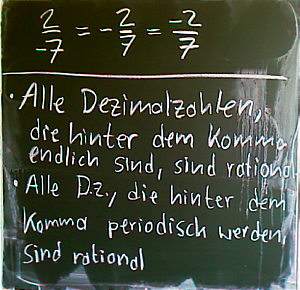 2/-7 = -2/7 = -2/7
· Alle Dezimalzahlen,
die hinter dem Komma
endlich sind, sind rational
· Alle D.z., die hinter dem
Komma periodisch werden,
sind rational